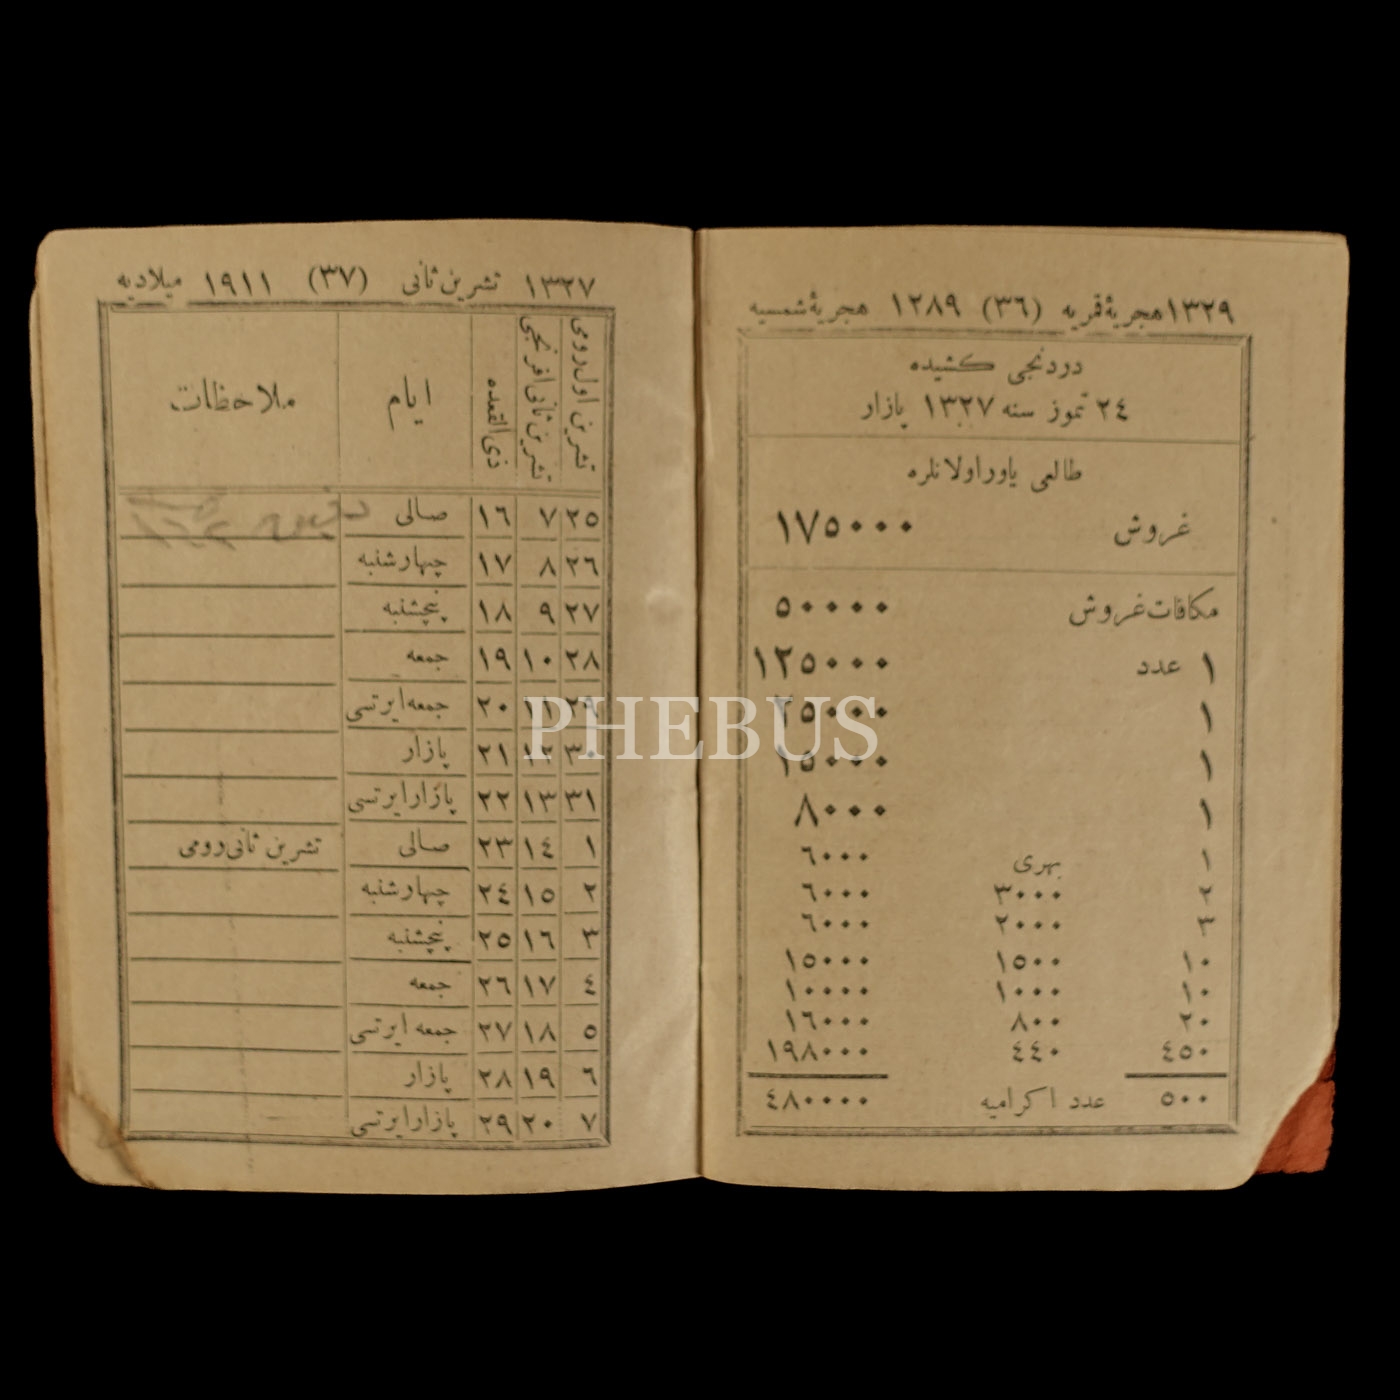 ١٣٢٩ هجریۀ قمریه (٣٦) ١٢٨٩ هجریۀ شمسیه
دردنجی کشیده
٢٤ تموز سنه ١٣٢٧ پازار
طالعی یاور اولانلره
غروش ١٧٥٠٠٠
مکافات غروش ٥٠٠٠٠
١ عدد ١٢٥٠٠٠
١ ٢٥٠٠٠
١ ١٥٠٠٠
١ ٨٠٠٠
١ بهری ٦٠٠٠
٢ ٣٠٠٠ ٦٠٠٠
٣ ٢٠٠٠ ٦٠٠٠
١٠ ١٥٠٠ ١٥٠٠٠
١٠ ١٠٠٠ ١٠٠٠٠
٢٠ ٨٠٠ ١٦٠٠٠
٤٥٠ ٤٤٠ ١٩٨٠٠٠
٥٠٠ عدد اکرامیه ٤٨٠٠٠٠
١٣٢٧ تشرین ثانی (٣٧) ١٩١١ میلادیه
تشرین اول رومی تشرین ثانی افرنجی ذی القعده ایام ملاحظات
٢٥ ٧ ١٦ صالی
٢٦ ٨ ١٧ چهارشنبه
٢٧ ٩ ١٨ پنچشنبه
٢٨ ١٠ ١٩ جمعه
٢٩ ١١ ٢٠ جمعه ایرتسی
٣٠ ١٢ ٢١ پازار
٣١ ١٣ ٢٢ پازار ایرتسی
١ ١٤ ٢٣ صالی تشرین ثانی رومی
٢ ١٥ ٢٤ چهارشنبه
٣ ١٦ ٢٥ پنچشنبه
٤ ١٧ ٢٦ جمعه
٥ ١٨ ٢٧ جمعه ایرتسی
٦ ١٩ ٢٨ پازار
٧ ٢٠ ٢٩ پازار ایرتسی
PHEBUS